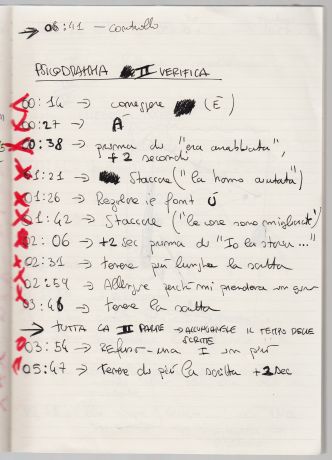 → 06:41 — controllo
PSICODRAMMA II VERIFICA
00:14 → correggere (È)
00:27 → À
00:38 → prima di "era arrabbiata",
+2 secondi
01:21 → Staccare ("la hanno aiutata")
01:26 → Regolare il font Ú
01:42 → Staccare ("le cose sono migliorate")
02:06 → +2 sec prima di "Io la storia..."
02:31 → tenere più lunga la scritta
02:54 → Allergie perché mi prendeva in giro
03:46 → tenere la scritta
→ TUTTA LA II PARTE → ALLUNGARE IL TEMPO DELLE
SCRITTE
03:54 → Refuso - una I in più
05:47 → Tenere di più la scritta +2 sec